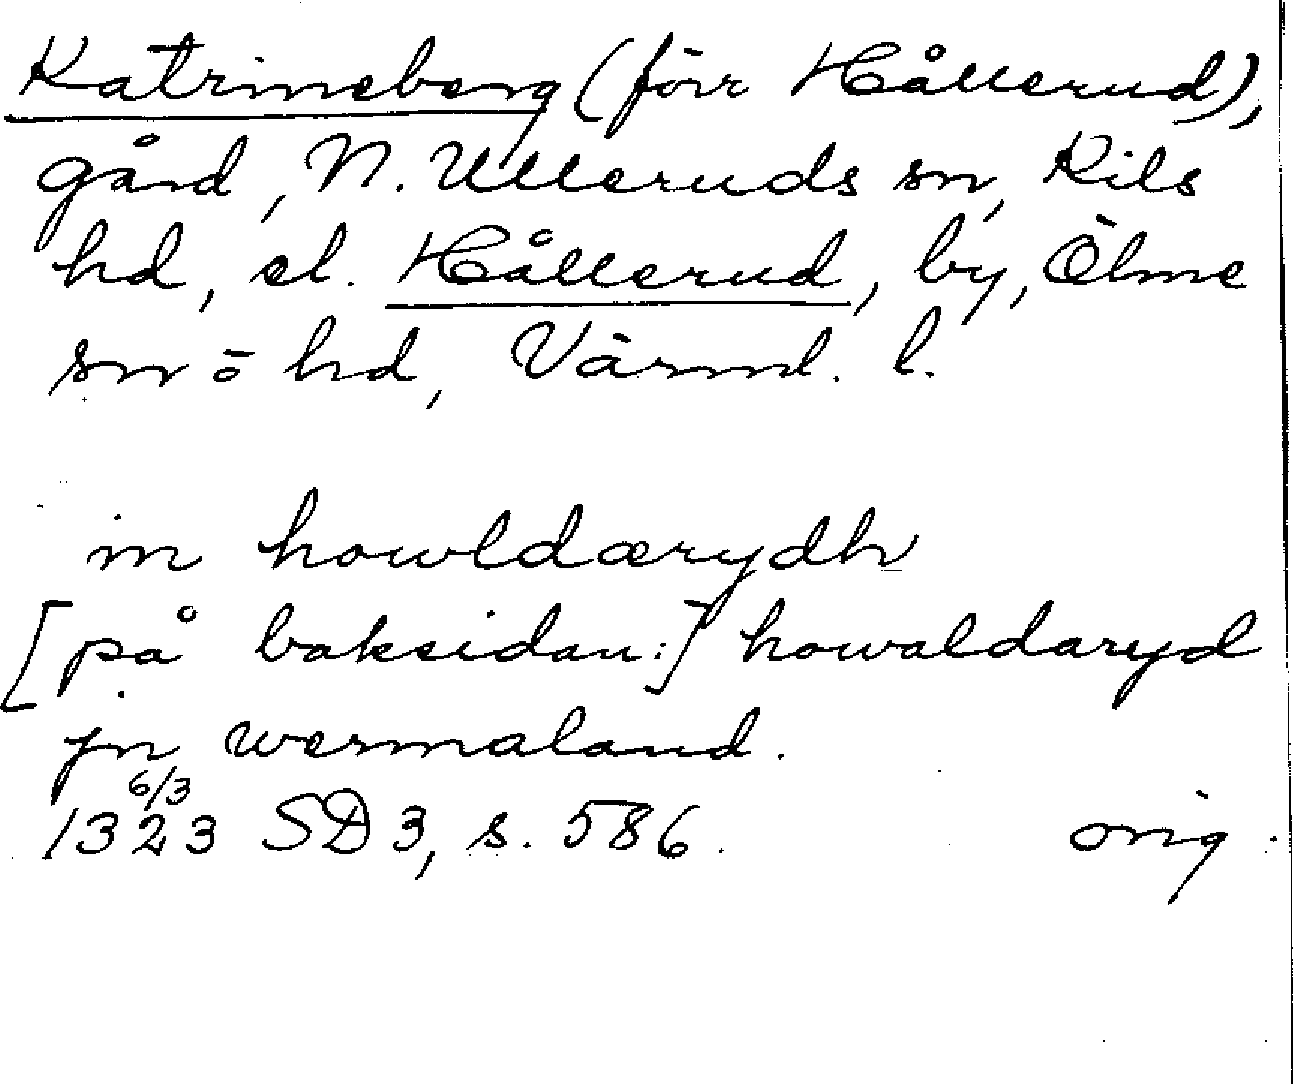 Katrineberg (förr Hållerud),
gård, N. Ulleruds sn, Kils
hd, el. Hållerud, by, Ölme
sn o hd, Värml. l.
in howldærydh
[på baksidan:] howaldaryd
jn wermaland.
1323 6/3 SD 3, s. 586. orig.